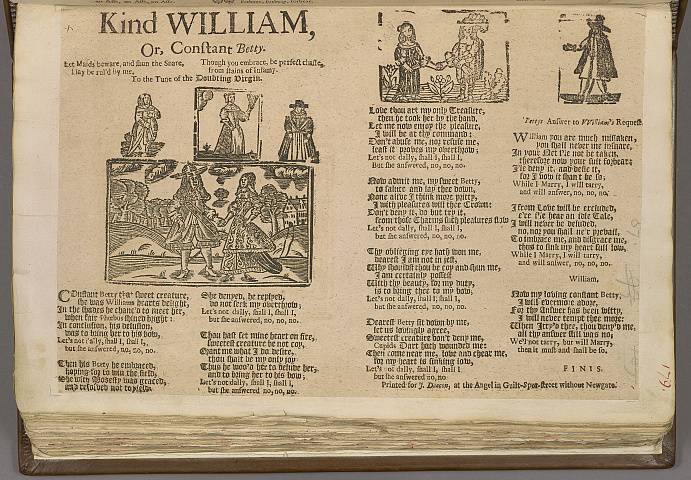 Kind WILLIAM,
Or, Constant Betty.
Let Maids beware, and shun the Snare,
I say be rul'd by me,
Though you embrace, be perfect chaste,
from stains of infamy.
To the Tune of the Doubting Virgin.
COnstant Betty that sweet creature,
she was Williams hearts delight,
In the shades he chanc'd to meet her,
when fair Phœbus shined bright:
In conclusion, his delusion,
was to bring her to his bow,
Let's not dally, shall I, shall I,
but she answered, no, no, no.
Then his Betty he embraced,
hoping for to win the field,
She with Modesty was graced,
and resolved not to yield.
She denyed, he replyed,
do not seek my overthrow;
Let's not dally, shall I, shall I,
but she answered, no, no, no.
Thou hast set mine heart on fire,
sweetest creature be not coy,
Grant me what I do desire,
thou shalt be my only joy
Thus he woo'd her to delude her;
and to bring her to his bow;
Let's not dally, shall I, shall I,
but she answered, no, no, no.
Love thou art my only Treasure,
then he took her by the hand,
Let me now enjoy the pleasure,
I will be at thy command:
Don't abuse me, nor refuse me,
least it proves my overthrow
Let's not dally, shall I, shall I,
But she answered, no, no, no.
Now admit me, my sweet Betty,
to salute and lay thee down,
None alive I think more pritty,
I with pleasures will thee Crown:
Don't deny it, do but try it,
from those Charms such pleasures flow
Let's not dally, shall I, shall I,
but she answered, no, no, no.
Thy obliging eye hath won me,
dearest I am not in jest,
Why shouldst thou be coy and shun me,
I am certainly possest
With thy beauty, for my duty,
is to bring thee to my bow,
Let's not dally, shall I, shall I
but she answered, no, no, no.
Dearest Betty sit down by me,
let us lovingly agree,
Sweetest creature don't deny me,
Cupids Dart hath wounded me:
Then come near me, love and chear me,
for my heart is sinking low,
Let's not dally, shall I, shall I
but she answered no, no, no.
Bettys Answer to William's Request.
William you are much mistaken,
you shall never me insnare,
In your Net I'le not be taken,
therefore now your suit forbear:
I'le deny it, and defie it,
for I vow it shan't be so;
While I Marry, I will tarry,
and will answer, no, no, no.
If from Love will be excluded,
e're I'le hear an idle Tale,
I will never be deluded,
no, nor you shall ne'r prevail,
To imbrace me, and disgrace me,
thus to sink my heart full low,
While I Marry, I will tarry,
and will answer, no, no, no.
William,
Now my loving constant Betty,
I will evermore adore,
For thy Answer has been witty,
I will never tempt thee more:
When I try'd thee, thou deny'd me,
all thy answer still was no,
We'l not tarry, but will Marry,
then it must and shall be so.
FINIS.
Printed for J. Deacon, at the Angel in Guilt-Spur-street without Newgate.
179